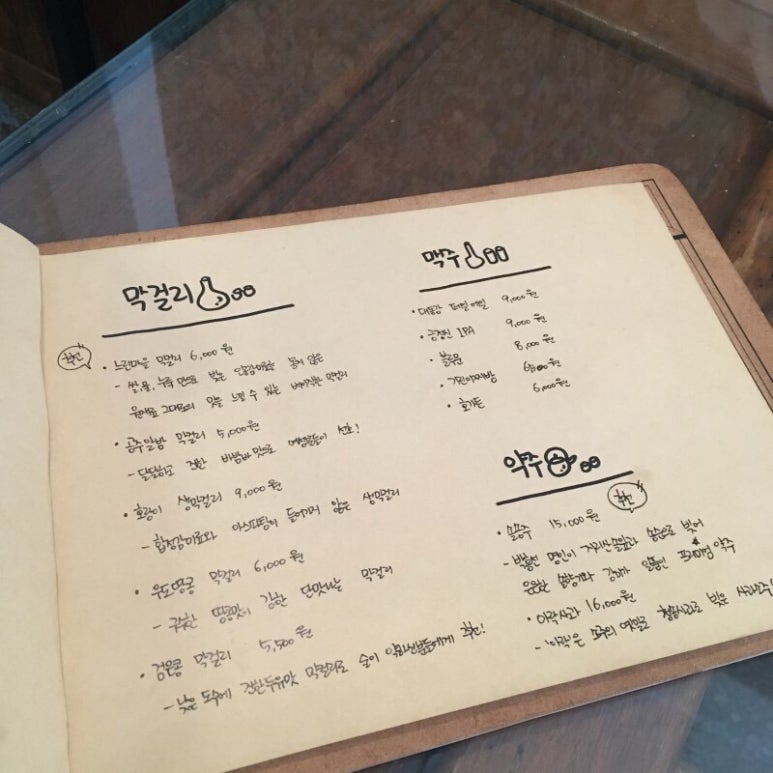 막걸리
추천
• 느린마을 막걸리 6,000원
- 쌀, 물, 누룩 만으로 빚은 인공감미료를 넣지 않은
원재료 그대로의 맛을 느낄 수 있는 막걸리
• 공주알밤 막걸리 5,000원
- 달달하고 진한 바밤바 맛으로 여성분들이 선호!
• 호랑이 생막걸리 9,000원
- 합성감미료와 아스파탐이 들어가지 않은 생막걸리
• 우도땅콩 막걸리 6,000원
- 구수한 땅콩맛이 강한 단맛나는 막걸리
• 검은콩 막걸리 5,500원
- 낮은 도수에 진한 두유맛 막걸리로 술이 약하신분들에게 추천!
맥주
• 대동강 페일에일 9,000원
• 긍정신 IPA 9,000원
• 블루문 8,000원
• 기린이찌방
• 호가든 6,000원
약주
추천
• 솔송주 15,000원
- 박흥선 명인이 지리산 솔잎과 송순으로 빚어
은은한 솔향기와 일품인 프리미엄 약주
• 이락사과 16,000원
- 이락은 소주의 옛말로 청송사과로 빚은 사과